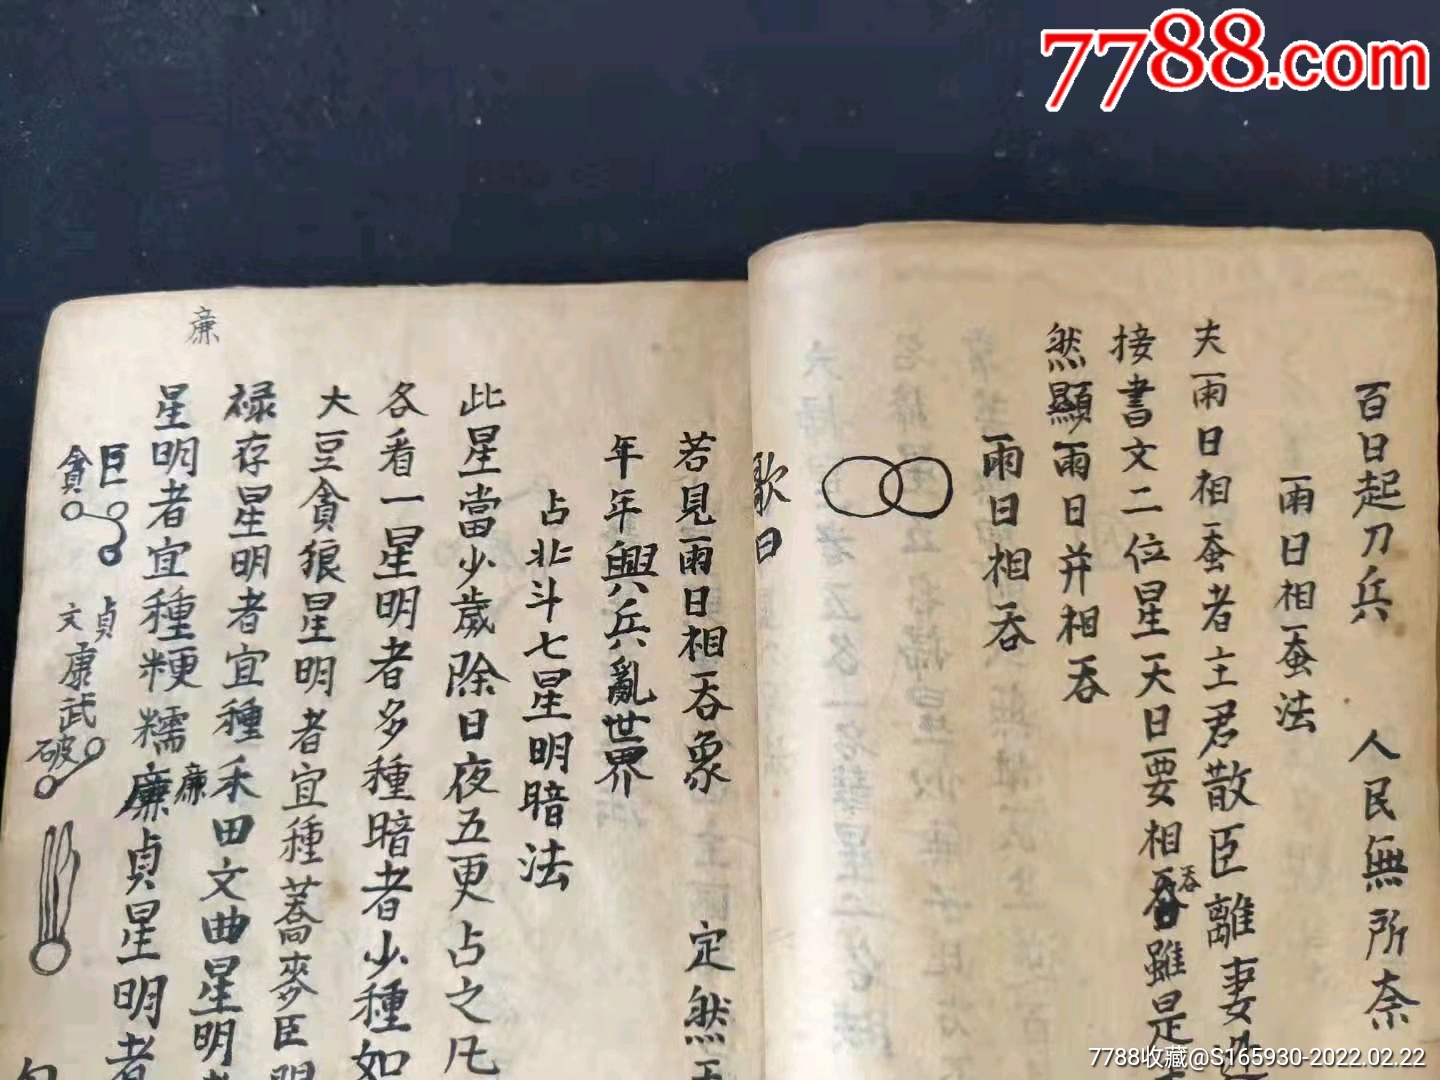 7788.com
百日起刀兵 人民無所奈
兩日相蚕法
夫兩日相蚕者主君散臣離妻
接書文二位星天日要相吞雖是
吞
然顯兩日并相吞
兩日相吞
歌曰
若見兩日相吞象 定然
年年興兵亂世界
占北斗七星明暗法
此星當少歲除日夜五更占之凡
各看一星明者多種暗者少種如
大豆貪狼星明者宜種蕎麥臣明
禄存星明者宜種禾田文曲星明
星明者宜種粳糯廉貞星明者
廉
廉
巨
貪
貞
文
康武
破
7788收藏@S165930-2022.02.22